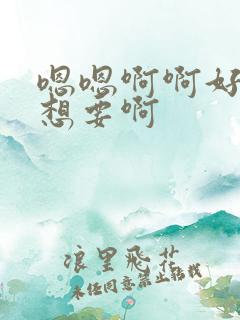 嗯嗯啊啊好
想要啊
浪里飞花
未经同意禁止转载